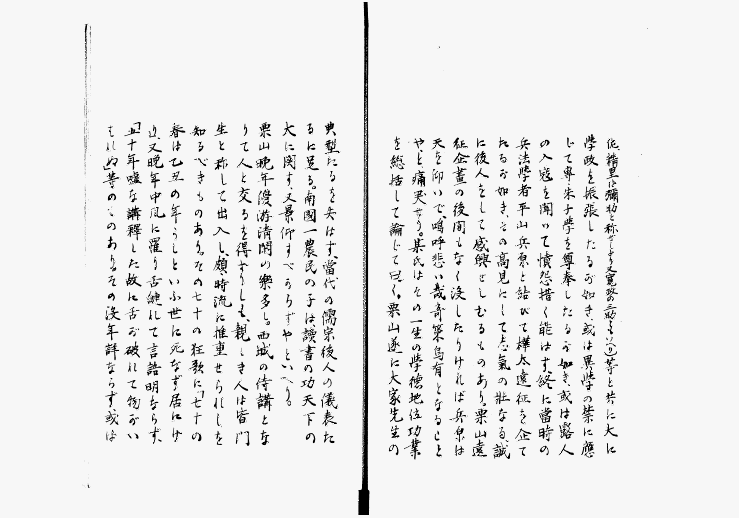 佐、精里は彌物と称せしより又寛政の三助ともいふ)等と共に大に
學政を振張したるが如き、或は異學の禁に應
じて專朱子學を尊奉したるが如き、或は露人
の入寇を聞いて憤怨措く能はず、終に當時の
兵法學者平山兵原と結びて樺太遠征を企て
たるが如き、その高見にして志氣の壯なる誠
に後人をして感興せしむるものあり。栗山遠
征企畫の後間もなく沒したりければ兵原は
天を仰いで、嗚呼悲い哉奇策烏有となることと
やと痛哭せり。某氏はその一生の學德地位功業
を総括して論じて曰く。栗山遂に大家先生の
典型たるを失はず、當代の儒宗後人の儀表た
るに足る。南國一農民の子は、讀書の功天下の
大に関す、又景仰すべからずやといへり。
栗山晩年優游清閑の樂多し。西城の侍講とな
りて人と交るを得ざりしも、親しき人は皆門
生と称して出入し、頗時流に推重せられしを
知るべきものあり。その七十の狂歌に「七十の
春は乙丑の年うしといふ世に死なず居にけ
り」又晩年中風に罹り舌縺れて言語明ならず、
「五十年嘘な講釋した故に舌が破れて物がい
はれぬ」等のものあり。その沒年詳ならず、或は